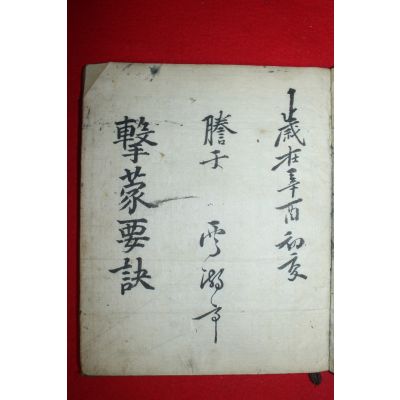 歲在辛酉初夏
謄于雪湖亭
擊蒙要訣